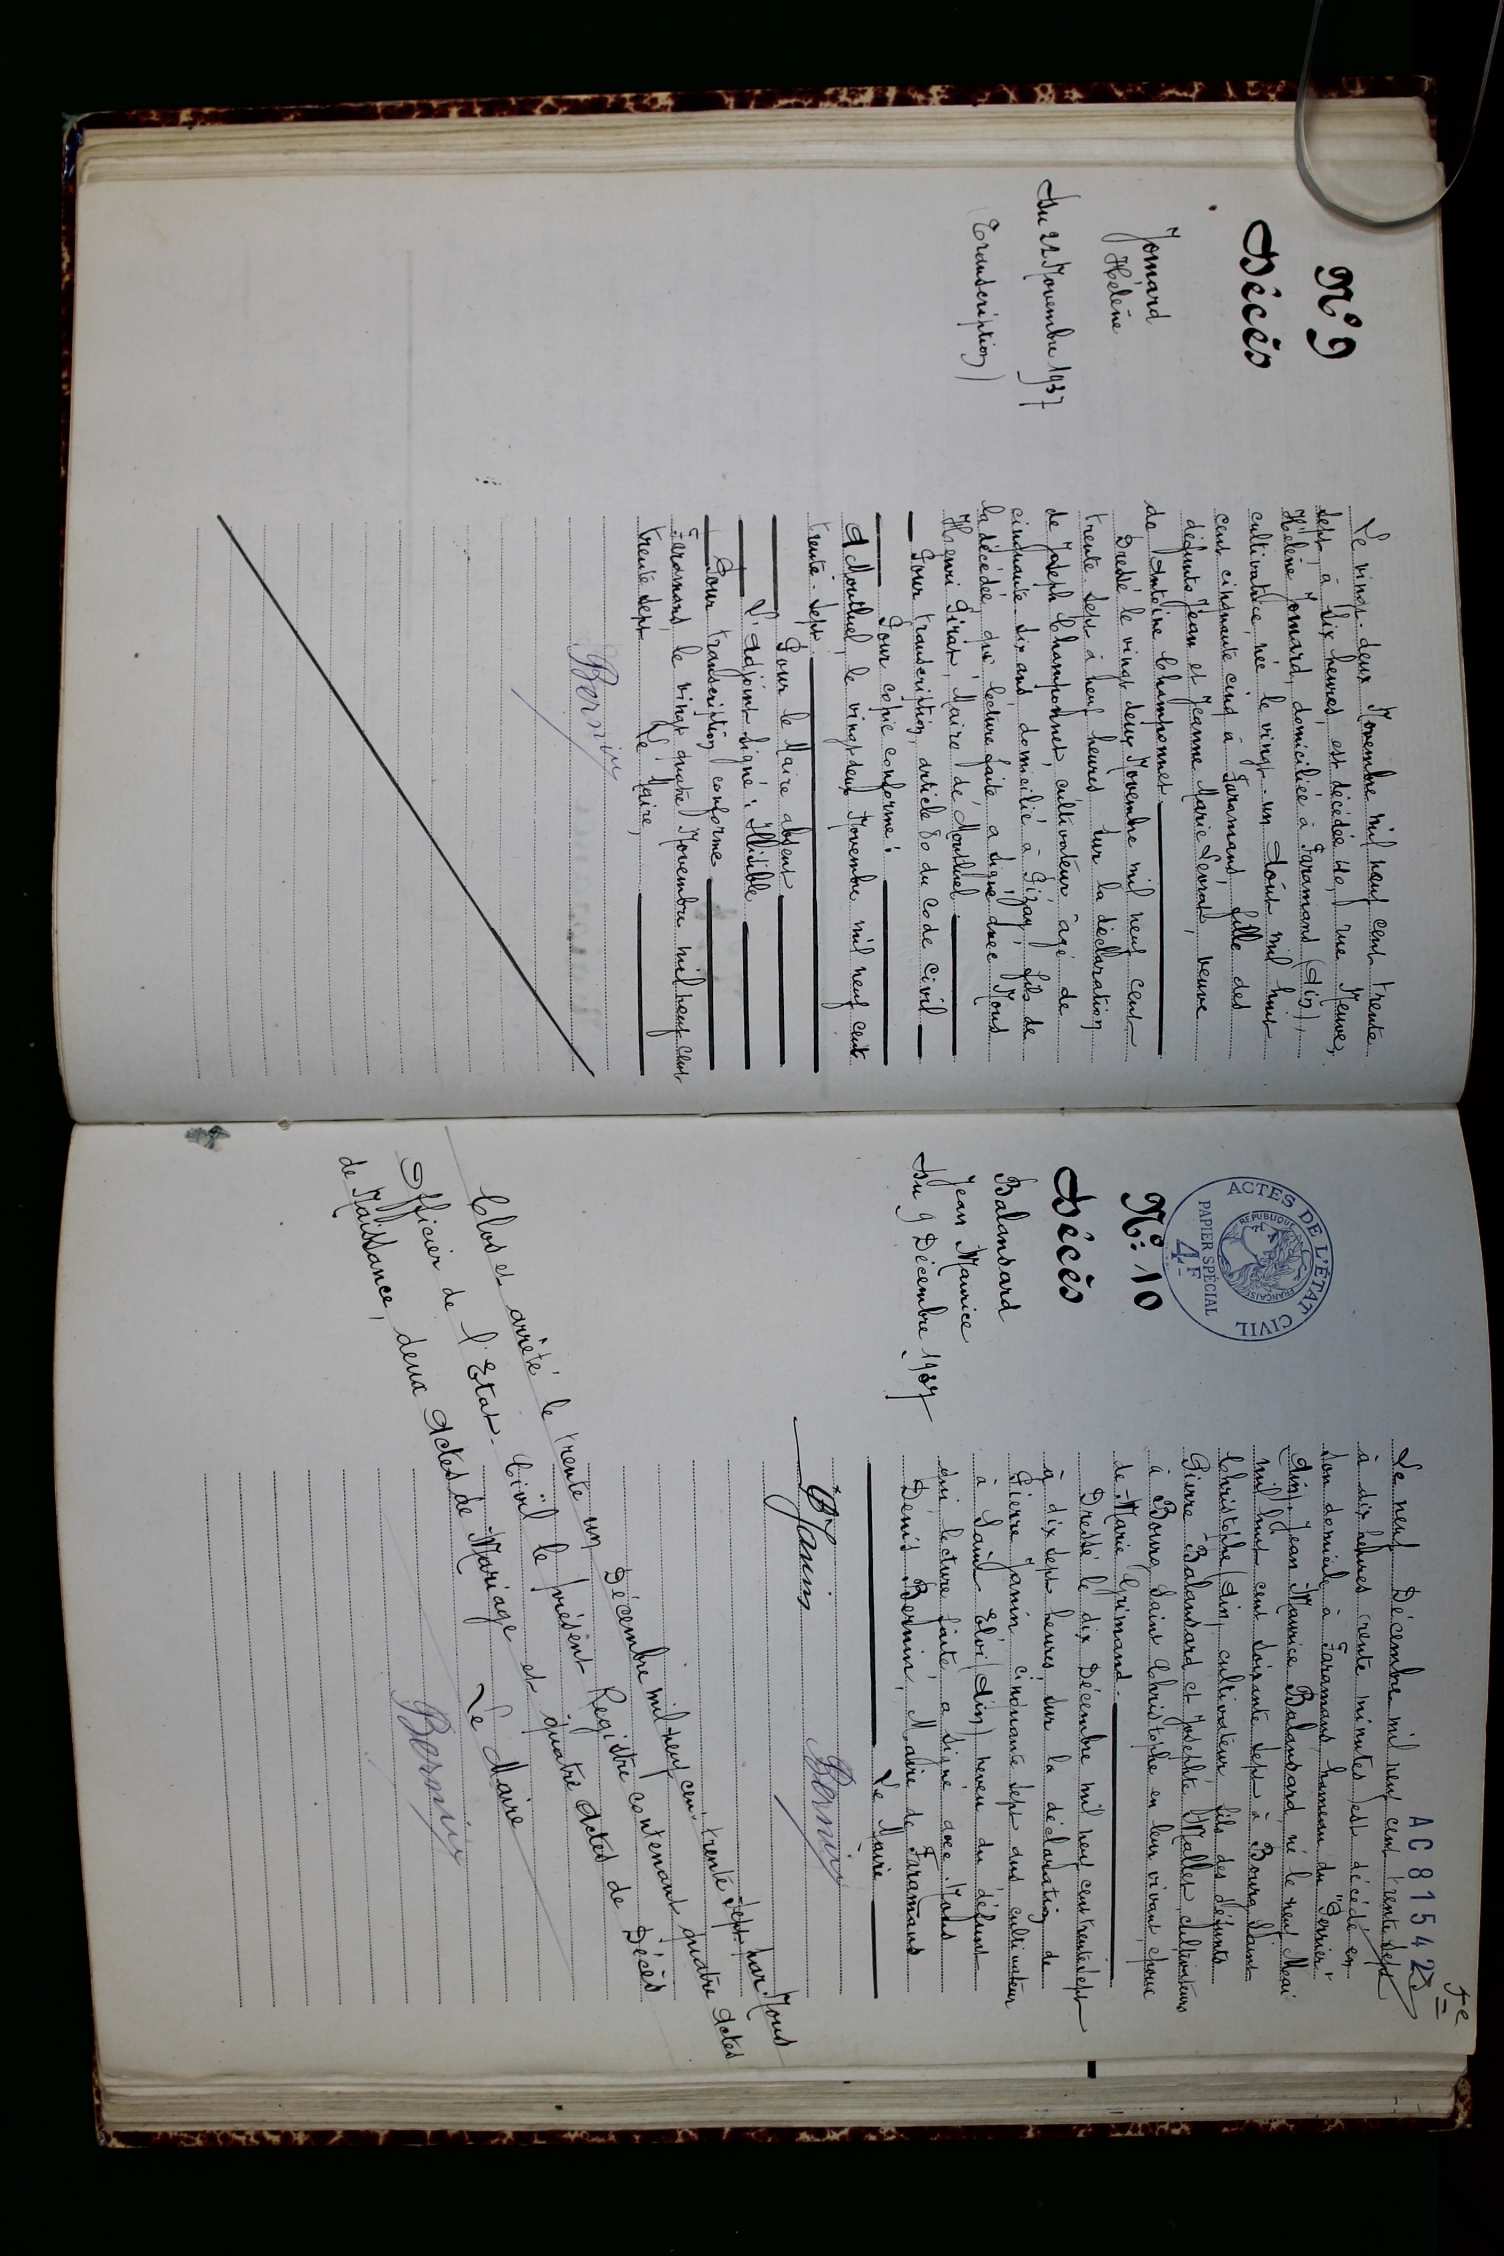 N° 9
Décès
Jomard
Hélène
Du 22 Novembre 1937
(Transcription)
Le vingt-deux Novembre mil neuf cent trente
sept à dix heures, est décédée rue Neuve,
Hélène Jomard, domiciliée à Faramans (Ain),
cultivatrice, née le vingt-un Août mil huit
cent cinquante cinq à Faramans, fille des
défunts Jean et Jeanne Marie Levrat, veuve
de Antoine Champonnet.
Dressé le vingt deux Novembre mil neuf cent
trente-sept à neuf heures sur la déclaration
de Joseph Champonnet, cultivateur, âgé de
cinquante-six ans, domicilié à Pizay, fils de
la décédée, qui lecture faite a signé avec Nous
Henri Girat, Maire de Montluel
Pour transcription, article 80 du code civil
Pour copie conforme:
A Montluel, le vingt deux Novembre mil neuf cent
trente-sept.
Pour le Maire absent
L'Adjoint signé: Illisible
Pour transcription conforme
Faramans, le vingt quatre Novembre mil neuf cent
trente sept
Le Maire,
Bernin
ACTES DE L'ÉTAT CIVIL
RÉPUBLIQUE FRANÇAISE
PAPIER SPÉCIAL
4F
AC 815423
N° 10
Décès
Balansard
Jean Maurice
Du 9 Décembre 1937
Le neuf Décembre mil neuf cent trente sept
à dix heures trente minutes est décédé en
son domicile à Faramans hameau du "Perrier"
(Ain) Jean Maurice Balansard, né le neuf Mai
mil huit cent soixante sept à Bourg Saint
Christophe (Ain) cultivateur, fils des défunts
Pierre Balansard et Josephte Mallet, cultivateurs
à Bourg Saint Christophe en leur vivant, époux
de Marie Grimand.
Dressé le dix Décembre mil neuf cent trente sept
à dix sept heures, sur la déclaration de
Pierre Janin, cinquante sept ans cultivateur
à Saint Eloi (Ain) neveu du défunt
qui lecture faite, a signé avec Nous
Denis Bernin, Maire de Faramans
Le Maire
Janin
Bernin
Clos et arrêté le trente un Décembre mil neuf cent trente sept par Nous
Officier de l'Etat-Civil le présent Registre contenant quatre Actes
de Naissance, deux Actes de Mariage et quatre Actes de Décès
Le Maire
Bernin